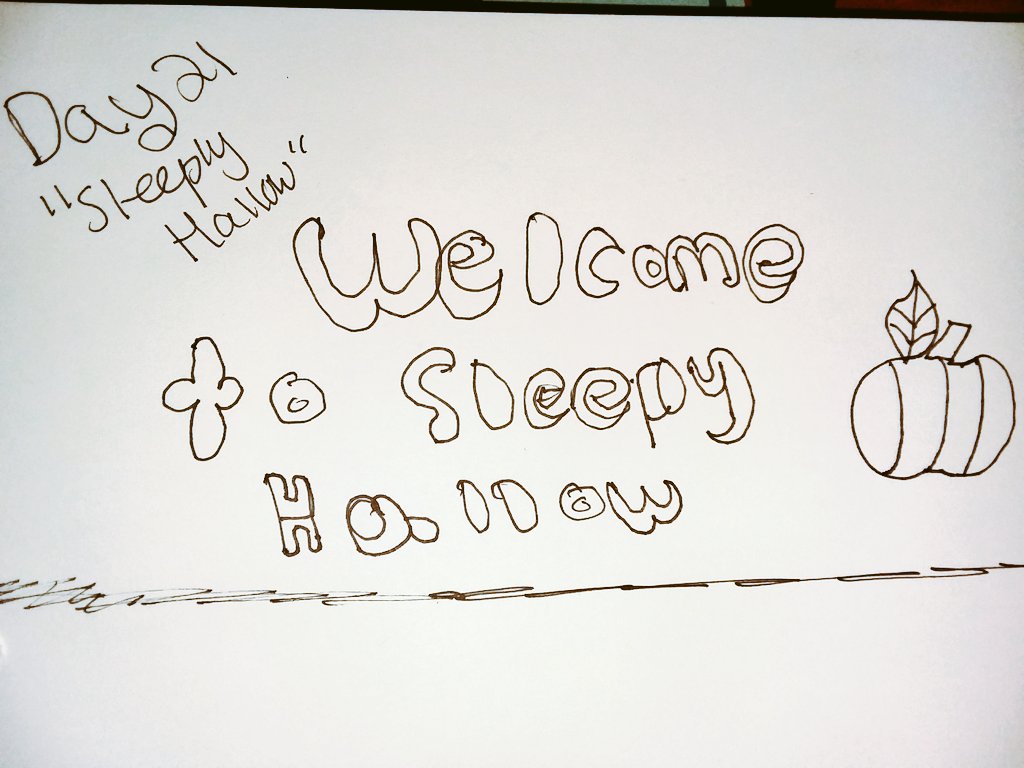 Day 21
"Sleeply
Hallow"
Welcome
to Sleepy
Hallow